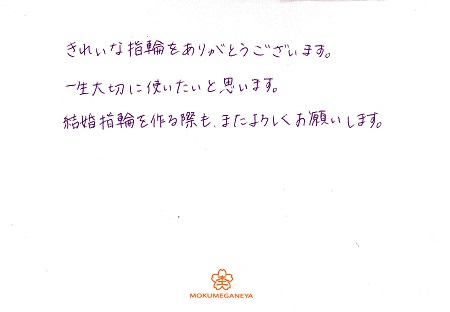 きれいな指輪をありがとうございます。
一生大切に使いたいと思います。
結婚指輪を作る際も、またよろしくお願いします。
MOKUMEGANEYA